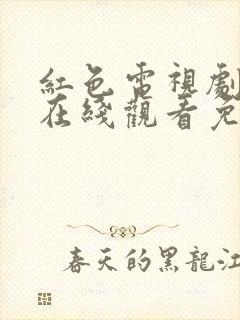 紅色電視劇
在綫觀看免
春天的黑龍江